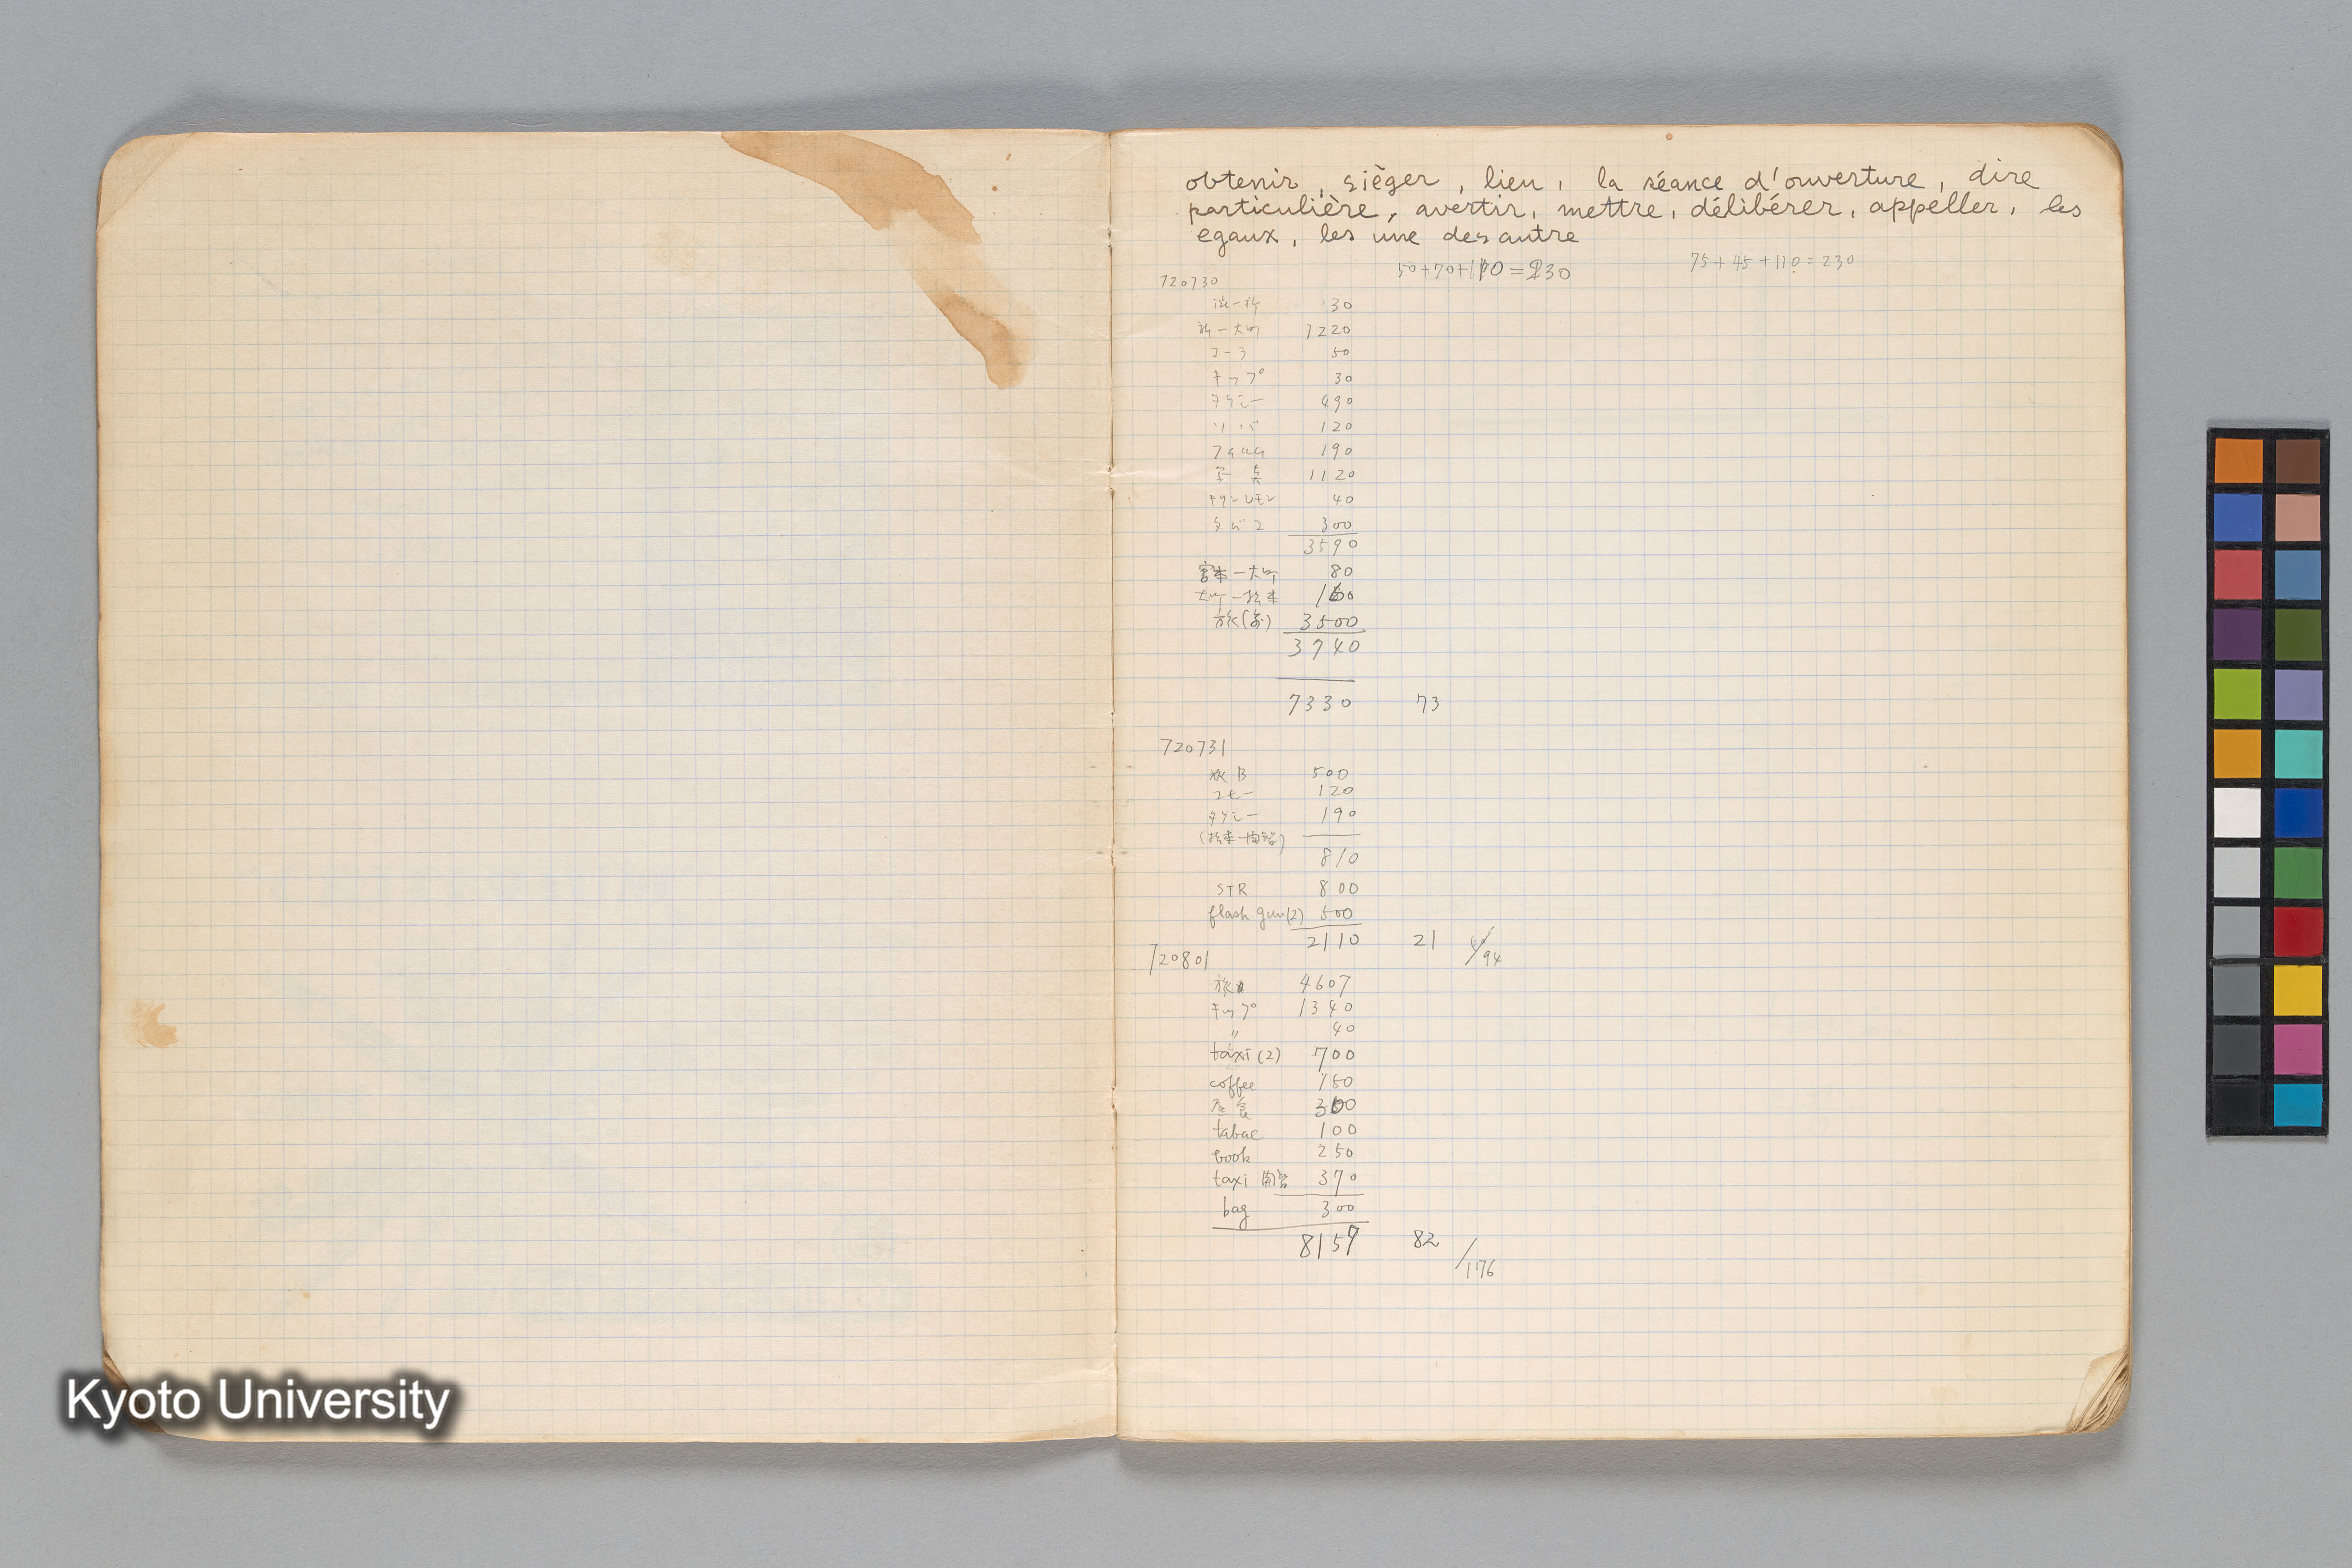 obtenir, sièger, lieu, la séance d'ouverture, dire
particulière, avertir, mettre, délibérer, appeller, les
egaux, les une des autre
50+70+110=230
75+45+110=230
720730
渋ー新 30
新ー大町 1220
コーラ 50
キップ 30
タクシー 490
ソバ 120
190
1120
キリンレモン 40
タバコ 300
3590
宮本ー大町 80
大町ー松本 160
旅(前) 3500
3740
7330 73
720731
氷B 500
コヒー 120
タクシー 190
(松本ー開智)
810
STR 800
flash gun(2) 500
2110 21 /94
720801
旅 4607
キップ 1340
〃 40
taxi(2) 700
coffee 150
昼食 300
tabac 100
book 250
taxi 開智 370
bag 300
8157 82
/176
Kyoto University